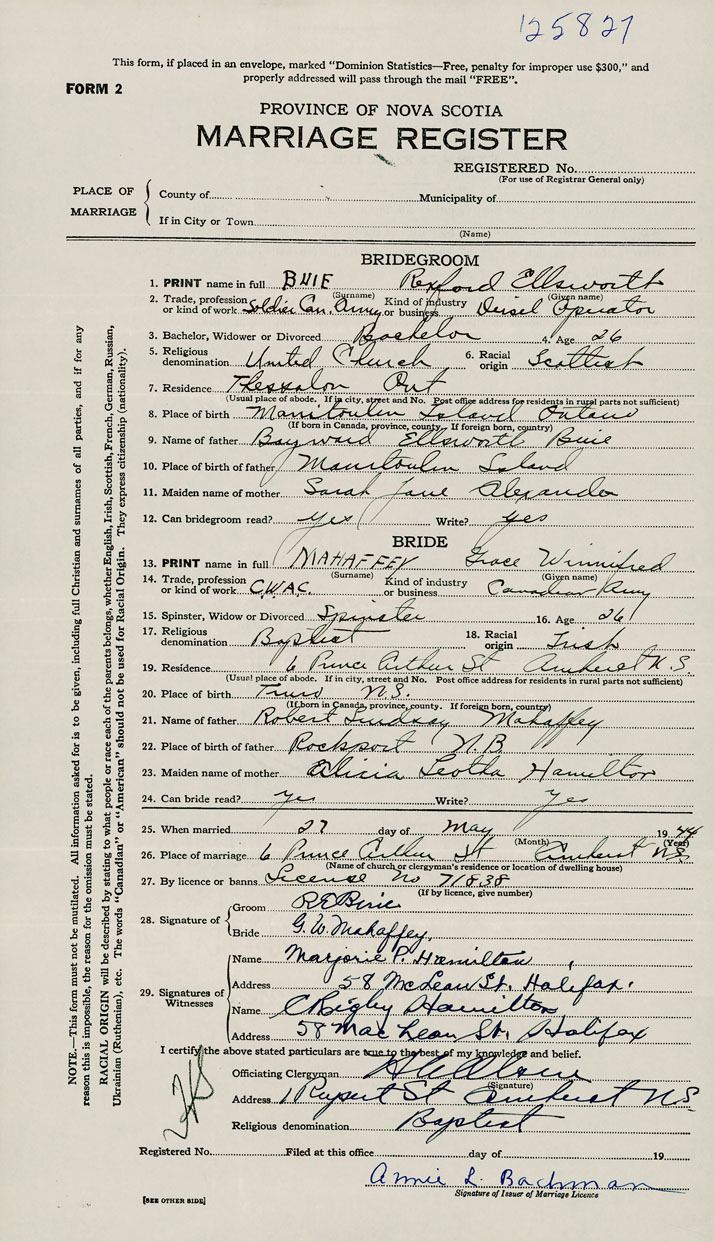 125827
This form, if placed in an envelope, marked "Dominion Statistics—Free, penalty for improper use $300," and
properly addressed will pass through the mail "FREE".
FORM 2
PROVINCE OF NOVA SCOTIA
MARRIAGE REGISTER
REGISTERED No.
(For use of Registrar General only)
PLACE OF MARRIAGE
County of Municipality of
If in City or Town
(Name)
BRIDEGROOM
1. PRINT name in full BUIE Rexford Ellsworth
(Surname) (Given name)
2. Trade, profession or kind of work Soldier Can. Army Kind of industry or business Diesel Operator
3. Bachelor, Widower or Divorced Bachelor 4. Age 26
5. Religious denomination United Church 6. Racial origin Scottish
7. Residence Thessalon Ont
(Usual place of abode. If in city, street and No. Post office address for residents in rural parts not sufficient)
8. Place of birth Manitoulin Island Ontario
(If born in Canada, province, county. If foreign born, country)
9. Name of father Bayward Ellsworth Buie
10. Place of birth of father Manitoulin Island
11. Maiden name of mother Sarah Jane Alexander
12. Can bridegroom read? yes Write? yes
BRIDE
13. PRINT name in full MAHAFFEY Grace Winnifred
(Surname) (Given name)
14. Trade, profession or kind of work C.W.A.C. Kind of industry or business Canadian Army
15. Spinster, Widow or Divorced Spinster 16. Age 26
17. Religious denomination Baptist 18. Racial origin Irish
19. Residence 6 Prince Arthur St Amherst N.S.
(Usual place of abode. If in city, street and No. Post office address for residents in rural parts not sufficient)
20. Place of birth Truro N.S.
(If born in Canada, province, county. If foreign born, country)
21. Name of father Robert Lindsay Mahaffey
22. Place of birth of father Rockport N.B.
23. Maiden name of mother Alicia Leotha Hamilton
24. Can bride read? yes Write? yes
25. When married 27 day of May 1944
(Month) (Year)
26. Place of marriage 6 Prince Arthur St Amherst N.S.
(Name of church or clergyman's residence or location of dwelling house)
27. By licence or banns License No 71838
(If by licence, give number)
28. Signature of
Groom R E Buie
Bride G. W. Mahaffey.
29. Signatures of Witnesses
Name Marjorie P. Hamilton
Address 58 McLean St. Halifax.
Name C Rigby Hamilton
Address 58 MacLean St. Halifax
I certify the above stated particulars are true to the best of my knowledge and belief.
Officiating Clergyman
(Signature)
Address 1 Rupert St Amherst N.S.
Religious denomination Baptist
Registered No. Filed at this office day of 19
Annie L. Bachman
Signature of Issuer of Marriage Licence
[SEE OTHER SIDE]
NOTE.—This form must not be mutilated. All information asked for is to be given, including full Christian and surnames of all parties, and if for any
reason this is impossible, the reason for the omission must be stated.
RACIAL ORIGIN will be described by stating to what people or race each of the parents belongs, whether English, Irish, Scottish, French, German, Russian,
Ukrainian (Ruthenian), etc. The words "Canadian" or "American" should not be used for Racial Origin. They express citizenship (nationality).